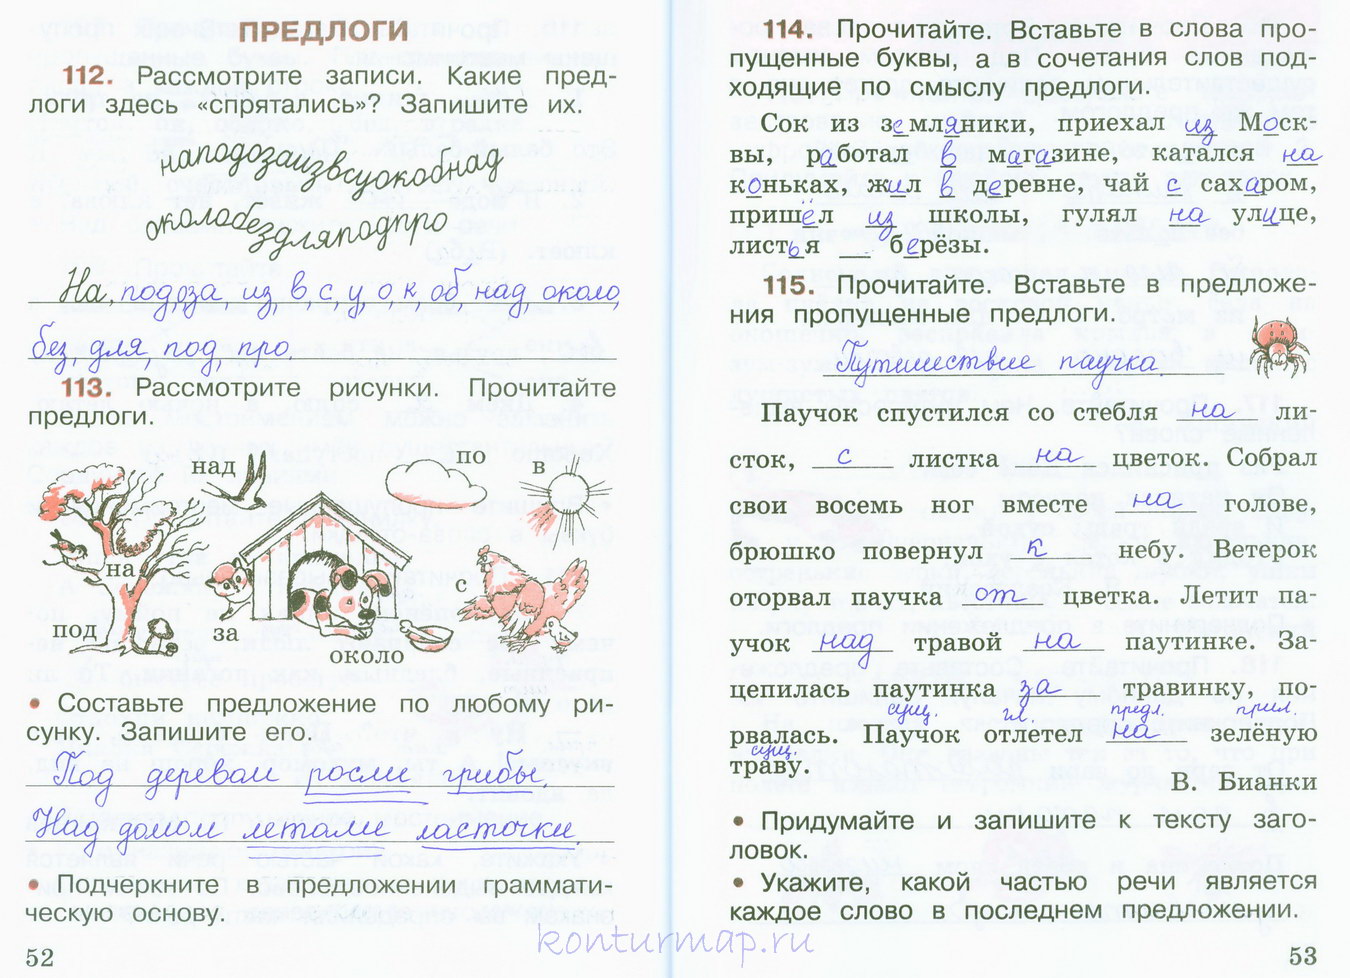 ПРЕДЛОГИ
112. Рассмотрите записи. Какие пред-
логи здесь «спрятались»? Запишите их.
наподозаизвсуокобнад
околобездляподпро
На, под, за, из, в, с, у, о, к, об, над, около,
без, для, под, про.
113. Рассмотрите рисунки. Прочитайте
предлоги.
над
по
в
на
с
под
за
около
• Составьте предложение по любому ри-
сунку. Запишите его.
Под деревом росли грибы.
Над домом летали ласточки
• Подчеркните в предложении граммати-
ческую основу.
52
114. Прочитайте. Вставьте в слова про-
пущенные буквы, а в сочетания слов под-
ходящие по смыслу предлоги.
Сок из земляники, приехал из Моск-
вы, работал в магазине, катался на
коньках, жил в деревне, чай с сахаром,
пришёл из школы, гулял на улице,
листья __ берёзы.
115. Прочитайте. Вставьте в предложе-
ния пропущенные предлоги.
Путешествие паучка.
Паучок спустился со стебля на ли-
сток, с листка на цветок. Собрал
свои восемь ног вместе на голове,
брюшко повернул к небу. Ветерок
оторвал паучка от цветка. Летит па-
учок над травой на паутинке. За-
цепилась паутинка за травинку, по-
сущ. гл. предл. прил.
рвалась. Паучок отлетел на зелёную
сущ.
траву.
В. Бианки
• Придумайте и запишите к тексту заго-
ловок.
• Укажите, какой частью речи является
каждое слово в последнем предложении.
53
konturmap.ru